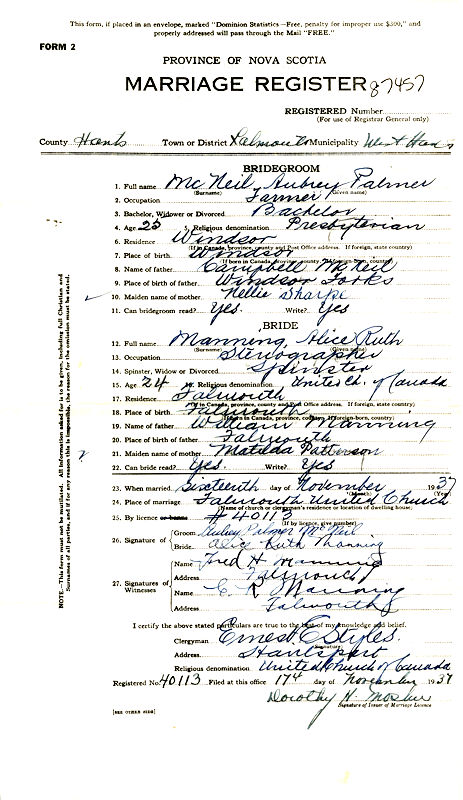 This form, if placed in an envelope, marked "Dominion Statistics—Free, penalty for improper use $300," and
properly addressed will pass through the Mail "FREE."
FORM 2
PROVINCE OF NOVA SCOTIA
MARRIAGE REGISTER 87457
REGISTERED Number
(For use of Registrar General only)
County Hants Town or District Falmouth Municipality West Hants
BRIDEGROOM
1. Full name McNeil, Aubrey Palmer
(Surname) (Given name)
2. Occupation Farmer
3. Bachelor, Widower or Divorced Bachelor
4. Age 25 5. Religious denomination Presbyterian
6. Residence Windsor
(If in Canada, province, county and Post Office address. If foreign, state country)
7. Place of birth Windsor
(If born in Canada, province, county. If foreign-born, country)
8. Name of father Campbell McNeil
9. Place of birth of father Windsor Forks
10. Maiden name of mother Nellie Sharpe
11. Can bridegroom read? Yes. Write? Yes
BRIDE
12. Full name Manning, Alice Ruth
(Surname) (Given name)
13. Occupation Stenographer
14. Spinster, Widow or Divorced Spinster
15. Age 24 16. Religious denomination United Ch. of Canada
17. Residence Falmouth
(If in Canada, province, county and Post Office address. If foreign, state country)
18. Place of birth Falmouth
(If born in Canada, province, county. If foreign-born, country)
19. Name of father William Manning
20. Place of birth of father Falmouth
21. Maiden name of mother Matilda Patterson
22. Can bride read? Yes. Write? Yes
23. When married sixteenth day of November 1937
(Month) (Year)
24. Place of marriage Falmouth United Church
(Name of church or clergyman's residence or location of dwelling house)
25. By licence or banns # 40113
(If by licence, give number)
26. Signature of
Groom Aubrey Palmer McNeil
Bride Alice Ruth Manning
27. Signatures of Witnesses
Name Fred H Manning
Address Falmouth
Name C. R Manning
Address Falmouth
I certify the above stated particulars are true to the best of my knowledge and belief.
Clergyman Ernest E Styles.
(Signature)
Address Hantsport
Religious denomination United Church of Canada
Registered No. 40113 Filed at this office 17th day of November 1937
Dorothy H. Mosher
Signature of Issuer of Marriage Licence
[SEE OTHER SIDE]
NOTE—This form must not be mutilated. All information asked for is to be given, including full Christian and
Surnames of all parties, and if for any reason this is impossible, the reason for the omission must be stated.